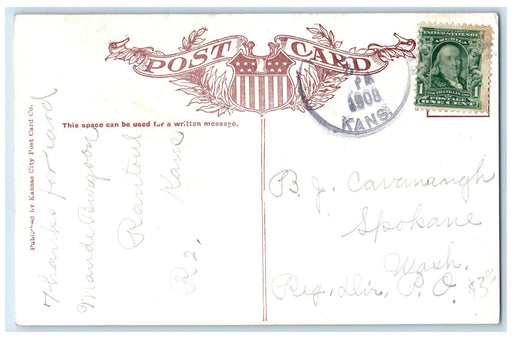 POST CARD
This space can be used for a written message.
Published by Kansas City Post Card Co.
Thanks for card
Maude Burgoon
Rantoul
Kans
R2,
PM
1908
KANS.
UNITED STATES OF AMERICA
FRANKLIN
1 1
POSTAGE
ONE CENT
B. J. Cavanaugh
Spokane
Wash.
Reg. Div. P. O.